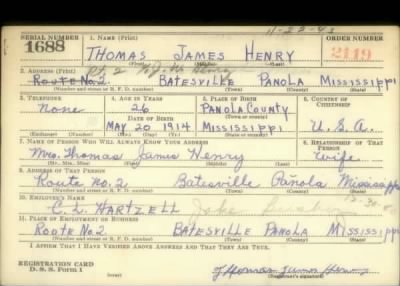 11-22-43
SERIAL NUMBER 1. NAME (Print) ORDER NUMBER
1688 THOMAS JAMES HENRY 2119
(First) (Middle) (Last)
2. ADDRESS (Print)
Route No. 2. BATESVILLE PANOLA MISSISSIPPI
(Number and street or R. F. D. number) (Town) (County) (State)
3. TELEPHONE 4. AGE IN YEARS 5. PLACE OF BIRTH 6. COUNTRY OF CITIZENSHIP
None 26 PANOLA COUNTY
DATE OF BIRTH (Town or county)
MAY 20 1914 MISSISSIPPI U.S.A.
(Exchange) (Number) (Mo.) (Day) (Yr.) (State or country)
7. NAME OF PERSON WHO WILL ALWAYS KNOW YOUR ADDRESS 8. RELATIONSHIP OF THAT PERSON
Mrs. Thomas James Henry Wife
(Mr., Mrs., Miss) (First) (Middle) (Last)
9. ADDRESS OF THAT PERSON
Route no. 2 Batesville Panola Mississippi
(Number and street or R. F. D. number) (Town) (County) (State)
10. EMPLOYER'S NAME
C. L. HARTZELL Jake
11. PLACE OF EMPLOYMENT OR BUSINESS
ROUTE NO. 2 BATESVILLE PANOLA MISSISSIPPI
(Number and street or R. F. D. number) (Town) (County) (State)
I AFFIRM THAT I HAVE VERIFIED ABOVE ANSWERS AND THAT THEY ARE TRUE.
REGISTRATION CARD
D. S. S. FORM 1 (over) Thomas James Henry
(Registrant's signature)